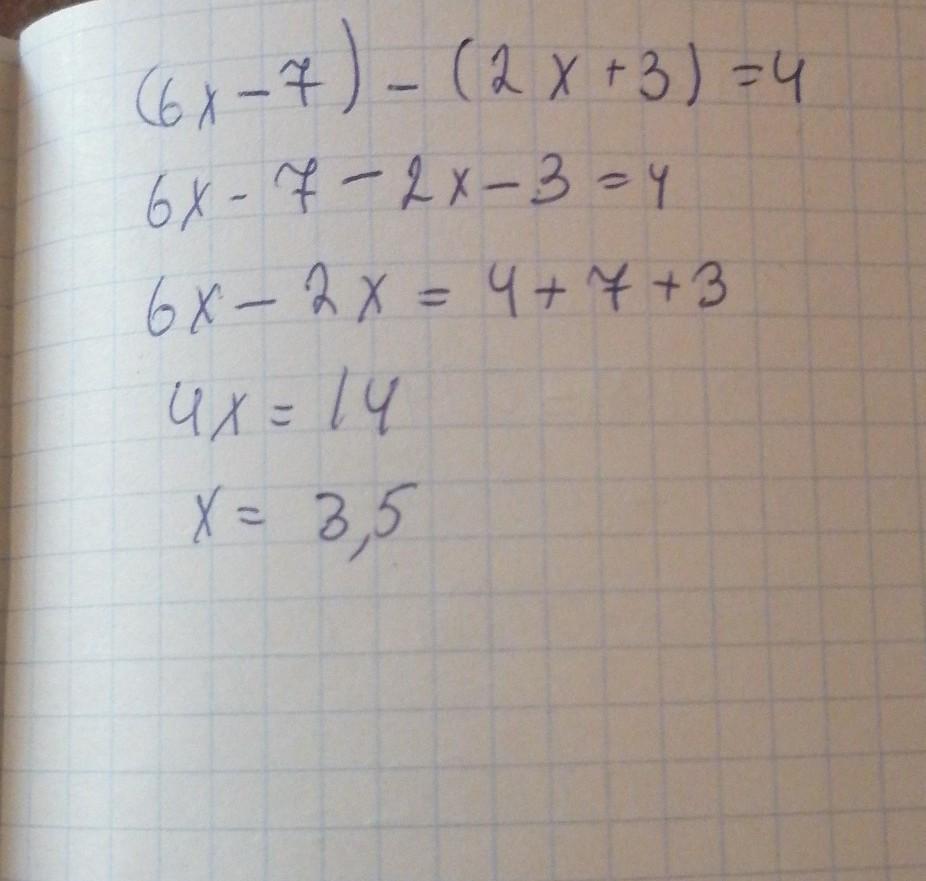 (6x-7)-(2x+3)=4
6x-7-2x-3=4
6x-2x=4+7+3
4x=14
x=3,5